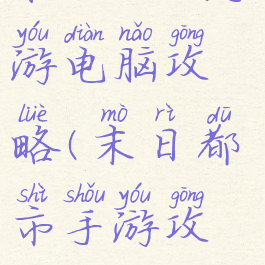 yóu diàn nǎo gōng
游电脑攻
lüè mò rì dū
略(末日都
shì shǒu yóu gōng
市手游攻